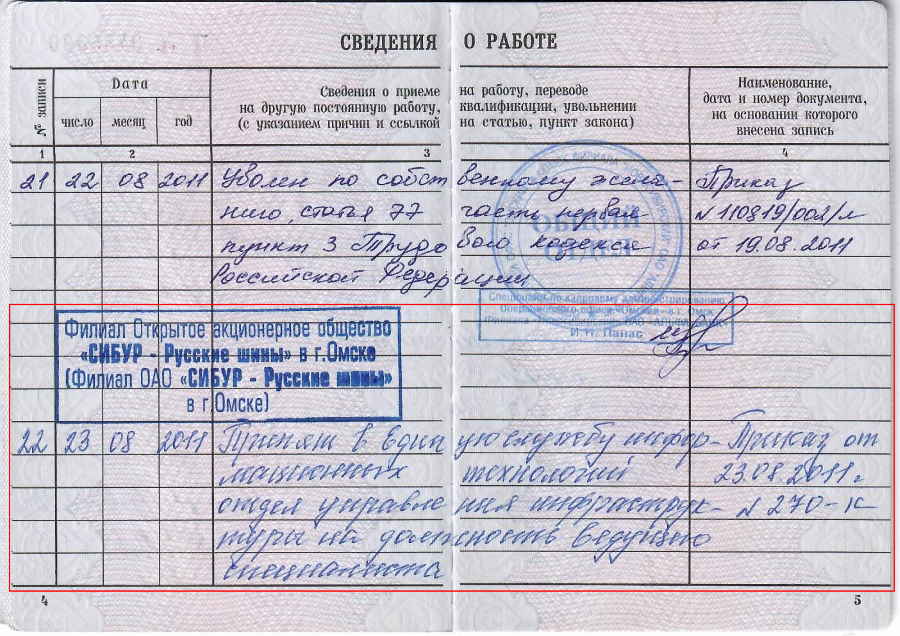 СВЕДЕНИЯ О РАБОТЕ
№ записи
Дата
число месяц год
Сведения о приеме на работу, переводе
на другую постоянную работу, квалификации, увольнении
(с указанием причин и ссылкой на статью, пункт закона)
Наименование,
дата и номер документа,
на основании которого
внесена запись
1 2 3 4
21 22 08 2011 Уволен по собственному жела- Приказ
нию, статья 77 часть первая N110819/002/л
пункт 3 Трудового кодекса от 19.08.2011
Российской Федерации
ОБЩИЙ
ОТДЕЛ
Специалист по кадровому администрированию
И.Н. Панас
Филиал Открытое акционерное общество
«СИБУР - Русские шины» в г.Омске
(Филиал ОАО «СИБУР - Русские шины»
в г.Омске)
22 23 08 2011 Принят в Единую службу инфор- Приказ от
мационных технологий 23.08.2011г
отдел управления инфраструк- N 270-к
туры на должность ведущего
специалиста
4 5